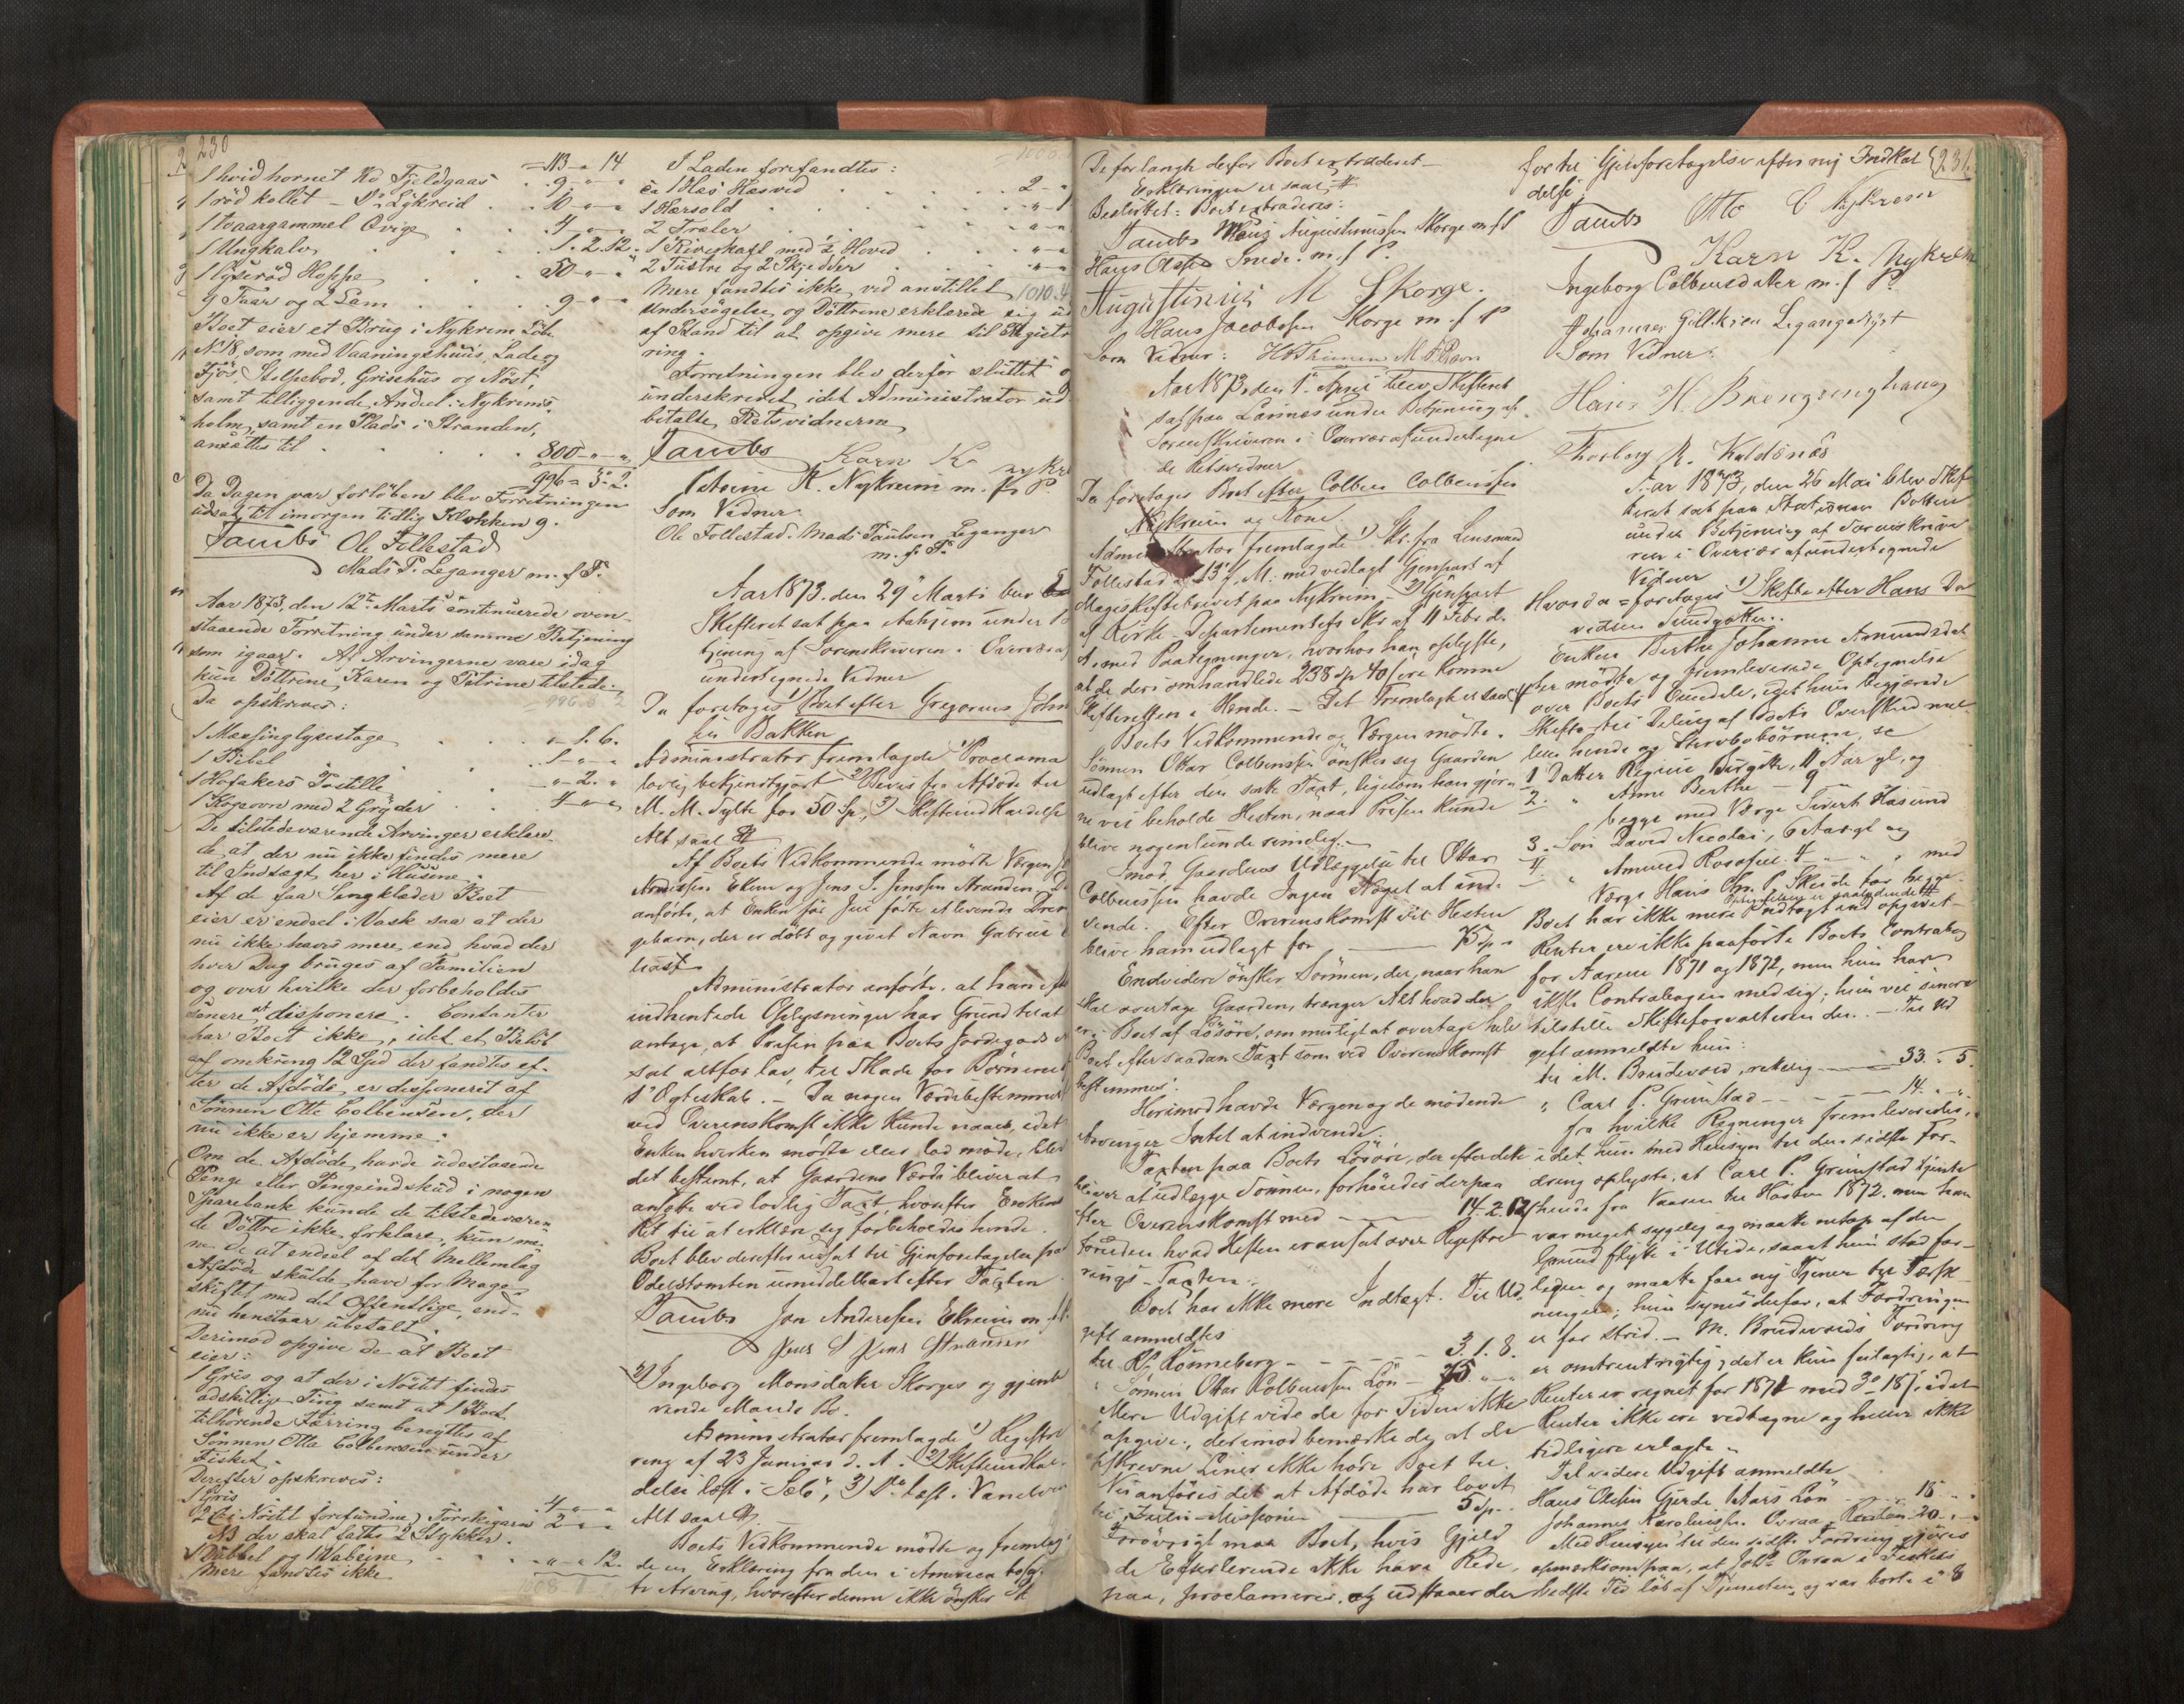 230
113 - 14
1 hvid hornet Ko Fjeldgaas . 9 - " - "
1 röd kollet - Do Lykreid . . 10 - " - "
1 toaargammel Qvige . . 4 - " - "
1 Ungkalv . . . 1. 2. 12.
1 Hoppe . . . 50 - " - "
4 Faar og 2 Lam . . . 9 - " - "
Boet eier et Brug i Nykrem Löb
No 18, som med Vaaningshuus, Lade og
Fjös, Stolpebod, Grisehus og Nöst,
samt tilliggende Andeel i Nykrems-
holm, samt en Plads i Stranden,
ansattes til . . . . 800 - " - "
996 - 3 - 2.
Da Dagen var forlöben blev Forretningen
udsat til imorgen tidlig Klokken 9.
Jambs Ole Follestad
Mads P. Leganger m. f. P.
Aar 1873, den 12te Marts continuerede oven-
staaende Forretning under samme Betjening
som igaar. Af Arvingerne vare idag
kun Döttrene, Karen og Petrine tilstede.
Da opskreves:
996. 3 2
1 Messinglysestage . . . " - 1. 6.
1 Bibel . . . 1 - " - "
1 Hofakers Postille . . . " - 2. "
1 Kogeovn med 2 Gryder . . 4 - " - "
De tilstedeværende Arvinger erklære-
de, at der nu ikke findes mere
til Indtægt her i Husene.
Af de faa Sengklæder Boet
eier er endeel i Vask saa at der
nu ikke haves mere end hvad der
hver Dag bruges af Familien
og over hvilke der forbeholdes
senere at disponere. Contanter
har Boet ikke, idet et Belöb
af omkring 12 Spd der fandtes ef-
ter de Afdöde, er disponeret af
Sönnen Otte Colbensen, der
nu ikke er hjemme.
Om de Afdöde havde udestaaende
Penge eller Pengeindskud i nogen
Sparebank kunde de tilstedeværen-
de Döttre ikke forklare, kun me-
ne de at endeel af det Mellemlag
Afdöde skulde have for Mage-
skiftet med det Offentlige, end-
nu henstaar ubetalt.
Derimod opgive de at Boet
eier:
1 Gris og at der i Nöstet findes
adskillige Ting samt at 1 Boet
tilhörende Færring benyttes af
Sönnen Otte Colbensen under
Fisket.
Derefter opskreves:
1 Gris . . . 4 - " - "
2 (i Nöstet forefundne) Torskegarn 2 - " - "
NB der skal haves 2 Stykker.
1 Dubbel og 1 Vabeine . . . " - " - 12.
Mere fandtes ikke
1008
I Laden forefandtes:
ca 1 Læs Hæsved . . . 2 - "
1 Hærsold . . . " - 1
2 Træler . . . " - "
1 Riveskaft med 1/2 Hoved . . " - "
2 Tustre og 2 Skjedder . . " - "
Mere fandtes ikke ved anstillet 1010. 4
Undersögelse og Döttrene erklærede sig ud
af Stand til at opgive mere til Registre-
ring.
Forretningen blev derfor sluttet o
underskrevet, idet Administrator ud-
betalte Retsvidnerne
Jambs Karn K. nykre
Petrine K. Nykreim m. f. P.
Som Vidner
Ole Follestad. Mads Paulsen Leganger
m. f. P.
Aar 1873. den 29de Marts blev
Skifteret sat paa Aahjem under B
tjening af Sorenskriveren i Overvær af
undertegnede Vidner
Da foretages 1) Boet efter Gregorius John
sen Bakken
Administrator fremlagde 1) Proclama
lovlig bekjendtgjort 2) Bevis fra Afdöde til
M. M. Sylte for 50 Sp, 3) Skifteindkaldelse
Alt saal.
Af Boets Vedkommende mödte Værgen J
Andersen Ekrem og Jens S. Jenssen Stranden. D
anförte, at Enken för Jul födte et levende Dren
gebarn, der er döbt og givet Navn Gabriel
liast
Administrator anförte, at han eft
indhentede Oplysninger har Grund til at
antage, at Prisen paa Boets Jordegods er
sat altfor lav, til Skade for Börnene
1ste Ægteskab. - Da nogen Værdibestemmel
ved Overenskomst ikke kunde naaes, idet
Enken hverken mödte eller lod möde, blev
det bestemt, at Gaardens Værdi bliver at
ansætte ved lovlig Taxt, hvorefter Enkens
Ret til at erklære sig forbeholdes hende.
Boet blev derefter udsat til Gjenforetagelse paa
Odelstomten umiddelbart efter Taxten
Jambs Jon Andersen Ekreim m. f. P.
Jens S Jens Stranden
2) Ingeborg Monsdatter Skorges og gjenle-
vende Mands Bo.
Administrator fremlagde 1) Registre-
ring af 23 Januar d. A. 2) Skifteindkal-
delse læst i Selö, 3) Do læst i Vanelven
Alt saal.
Boets Vedkommende mödte og fremlag-
de en Erklæring fra den i America bosa
te Arving, hvorefter denne ikke önsker Sk
De forlangte derfor Boet extraderet -
Erklæringen er saal.
Besluttet: Boet extraderes:
Jambs Mons Augustinussen Skorge m. f. P
Hans Olsen Snede. m. f P.
Augustinus M Skorge.
Hans Jacobsen Skorge m. f P
Som Vidner: H Thunem M. P. Ravn
Aar 1873, den 1ste April blev Skifteret
sat paa Larsnæs under Betjening af
Sorenskriveren i Overvær af undertegne
de Retsvidner
Da foretages Boet efter Colben Colbensen
Nykreim og Kone
Administrator fremlagde 1) Skr. fra Lensmand
Follestad af 13 f. M. med vedlagt Gjenpart af
Mageskiftebrevet paa Nykreim, - 2) Gjenpart
af Kirke-Departementets Skr. af 11 Febr. d.
A. med Paategninger, hvorhos han oplyste,
at de deri omhandlede 238 Sp 40 s ere komne
Skifteretten i Hænde. - Det Fremlagte er saal.
Boets Vedkommende og Værgen mödte.
Sönnen Ottar Colbenssen önsker sig Gaarden
udlagt efter den satte Taxt, ligesom han gjör-
ne vil beholde Hesten, naar Prisen kunde
blive nogenlunde rimelig. -
Imod Gaardens Udlæggelse til Ottar
Colbenssen havde Ingen Noget at ind-
vende. Efter Overenskomst vil Hesten
blive ham udlagt for - 75 Sp -
Endvidere önsker Sönnen, der, naar han
skal overtage Gaarden, trænger Alt hvad der
er i Boet af Lösöre, om muligt at overtage hele
Boet efter saadan Taxt som ved Overenskomst
bestemmes.
Herimod havde Værgen og de mödende
Arvinger Intet at indvende.
Taxten paa Boets Lösöre, der efter dette
bliver at udlægge Sönnen, forhöiedes derpaa
efter Overenskomst med - 14. 2. 12 s
foruden hvad Hesten er ansat over Registre-
rings-Taxten.
Boet har ikke mere Indtægt. Til Ud-
gift anmeldtes
til R. Rönneberg - - - 3. 1. 8.
" Sönnen Ottar Kolbenssen Lön - 15 " - "
Mere Udgift vide de for Tiden ikke
opgive, derimod bemærke de, at de
beskrevne Liner ikke höre Boet til.
Nu anföres det at Afdöde har lovet
til Indre-Missionen - 5 Sp.
Forövrigt maa Boet, hvis Gjeld
de Efterlevende ikke have Rede
paa, proclameres, og udstaaer der-
231.
for til Gjenforetagelse efter ny Indkal-
delse
Jambs Otte C Nykrem
Karn K. Nykrem
Ingeborg Colbensdatter m. f P.
Johannes Gilleksen Legangedyst
Som Vidner:
Hans H. Brengsenghaug
Thorberg R. Kaldsnäs
Aar 1873, den 26 Mai blev Skif-
teret sat paa Botten
under Betjening af Sorenskrive-
ren i Overvær af undertegnede
Vidner
Hvorda foretages 1) Skifte efter Hans Da-
vidsen Sundgotten.
Enken Berthe Johanne Amundsdat-
ter mödte og fremleverede Optegnelse
over Boets Eiendele, idet hun begjærede
Skifte til Deling af Boets Overskud mel-
lem hende og Stervbobörnene, se
1 Datter Regine Birgitte, 11 Aar gl, og
2. " Anne Berthe - 9 "
begge med Værge Sivert Hasund
3. Sön David Nicolai, 6 Aar gl og
4. " Amund Rasmus. 4 - " " med
Værge Hans Chr. P. Skeide for begge
Optegnelsen er saalydende
Boet har ikke mere Indtægt end opgivet
Renter ere ikke paaförte Boets Contrabog
for Aarene 1871 og 1872, men hun har
ikke Contrabogen med sig; hun vil senere
tilstille Skifteforvalteren den. - Til Ud-
gift anmeldte hun:
til M. Brudevold, rettelig - 33. " 5.
" Carl P. Grimstad - - - 14. " - "
fra hvilke Regninger fremleveredes,
idet hun med Hensyn til den sidste For-
dring oplyste, at Carl P. Grimstad tjente
hende fra Vaaren til Hösten 1872, men han
var meget sygelig og maatte netop af den
Grund flytte i Utide, saaat hun stod for-
legen og maatte faae ny Tjener til Tærsk-
ningen; hun synes derfor, at Fordringen
er for strid. - M. Brudevolds Fordring
er omtrent rigtig; det er kun feilagtig, at
Renter er regnet for 1871 med 3 - 18 s, idet
Renter ikke ere vedtagne og heller ikke
tidligere erlagte. -
Til videre Udgift anmeldte
Hans Olsen Gjerde Aars Lön - 18 " "
Johannes Karolussen Ovraa, Resten - 20 - " - "
Med Hensyn til den sidste Fordring gjöres
opmærksom paa, at Johs Ovraa i Fiskets
bedste Tid löb af Tjenesten og var borte i 8